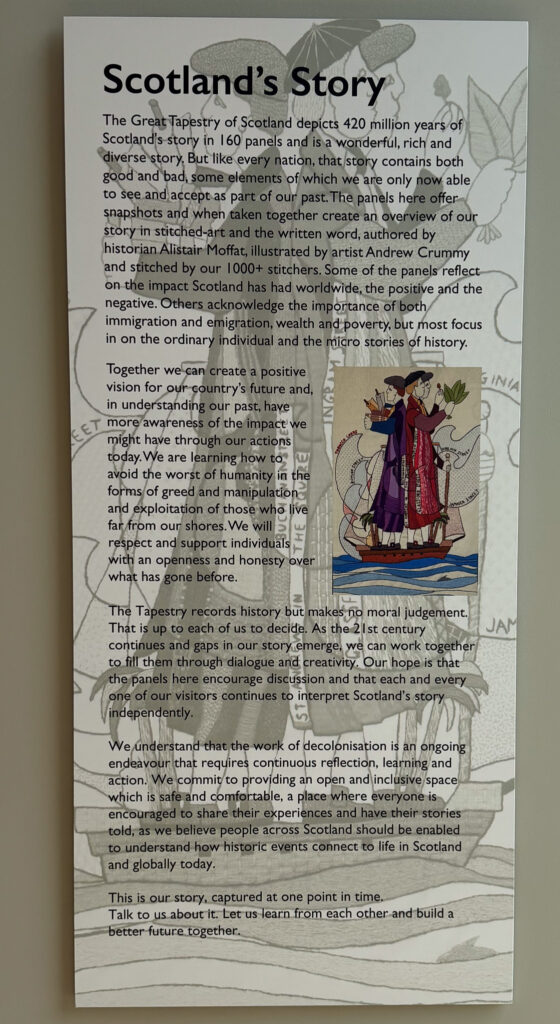 Scotland's Story
The Great Tapestry of Scotland depicts 420 million years of
Scotland's story in 160 panels and is a wonderful, rich and
diverse story, But like every nation, that story contains both
good and bad, some elements of which we are only now able
to see and accept as part of our past. The panels here offer
snapshots and when taken together create an overview of our
story in stitched-art and the written word, authored by
historian Alistair Moffat, illustrated by artist Andrew Crummy
and stitched by our 1000+ stitchers. Some of the panels reflect
on the impact Scotland has had worldwide, the positive and the
negative. Others acknowledge the importance of both
immigration and emigration, wealth and poverty, but most focus
in on the ordinary individual and the micro stories of history.
Together we can create a positive
vision for our country's future and,
in understanding our past, have
more awareness of the impact we
might have through our actions
today. We are learning how to
avoid the worst of humanity in the
forms of greed and manipulation
and exploitation of those who live
far from our shores. We will
respect and support individuals
with an openness and honesty over
what has gone before.
The Tapestry records history but makes no moral judgement.
That is up to each of us to decide. As the 21st century
continues and gaps in our story emerge, we can work together
to fill them through dialogue and creativity. Our hope is that
the panels here encourage discussion and that each and every
one of our visitors continues to interpret Scotland's story
independently.
We understand that the work of decolonisation is an ongoing
endeavour that requires continuous reflection, learning and
action. We commit to providing an open and inclusive space
which is safe and comfortable, a place where everyone is
encouraged to share their experiences and have their stories
told, as we believe people across Scotland should be enabled
to understand how historic events connect to life in Scotland
and globally today.
This is our story, captured at one point in time.
Talk to us about it. Let us learn from each other and build a
better future together.